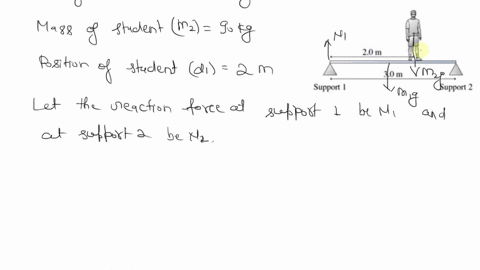 Mass of student (m2) = 90 kg
Position of student (d1) = 2 m
Let the reaction force at support 1 be N1 and
at support 2 be N2.
N1
2.0 m
m2g
3.0 m
Support 1
Support 2
m1g